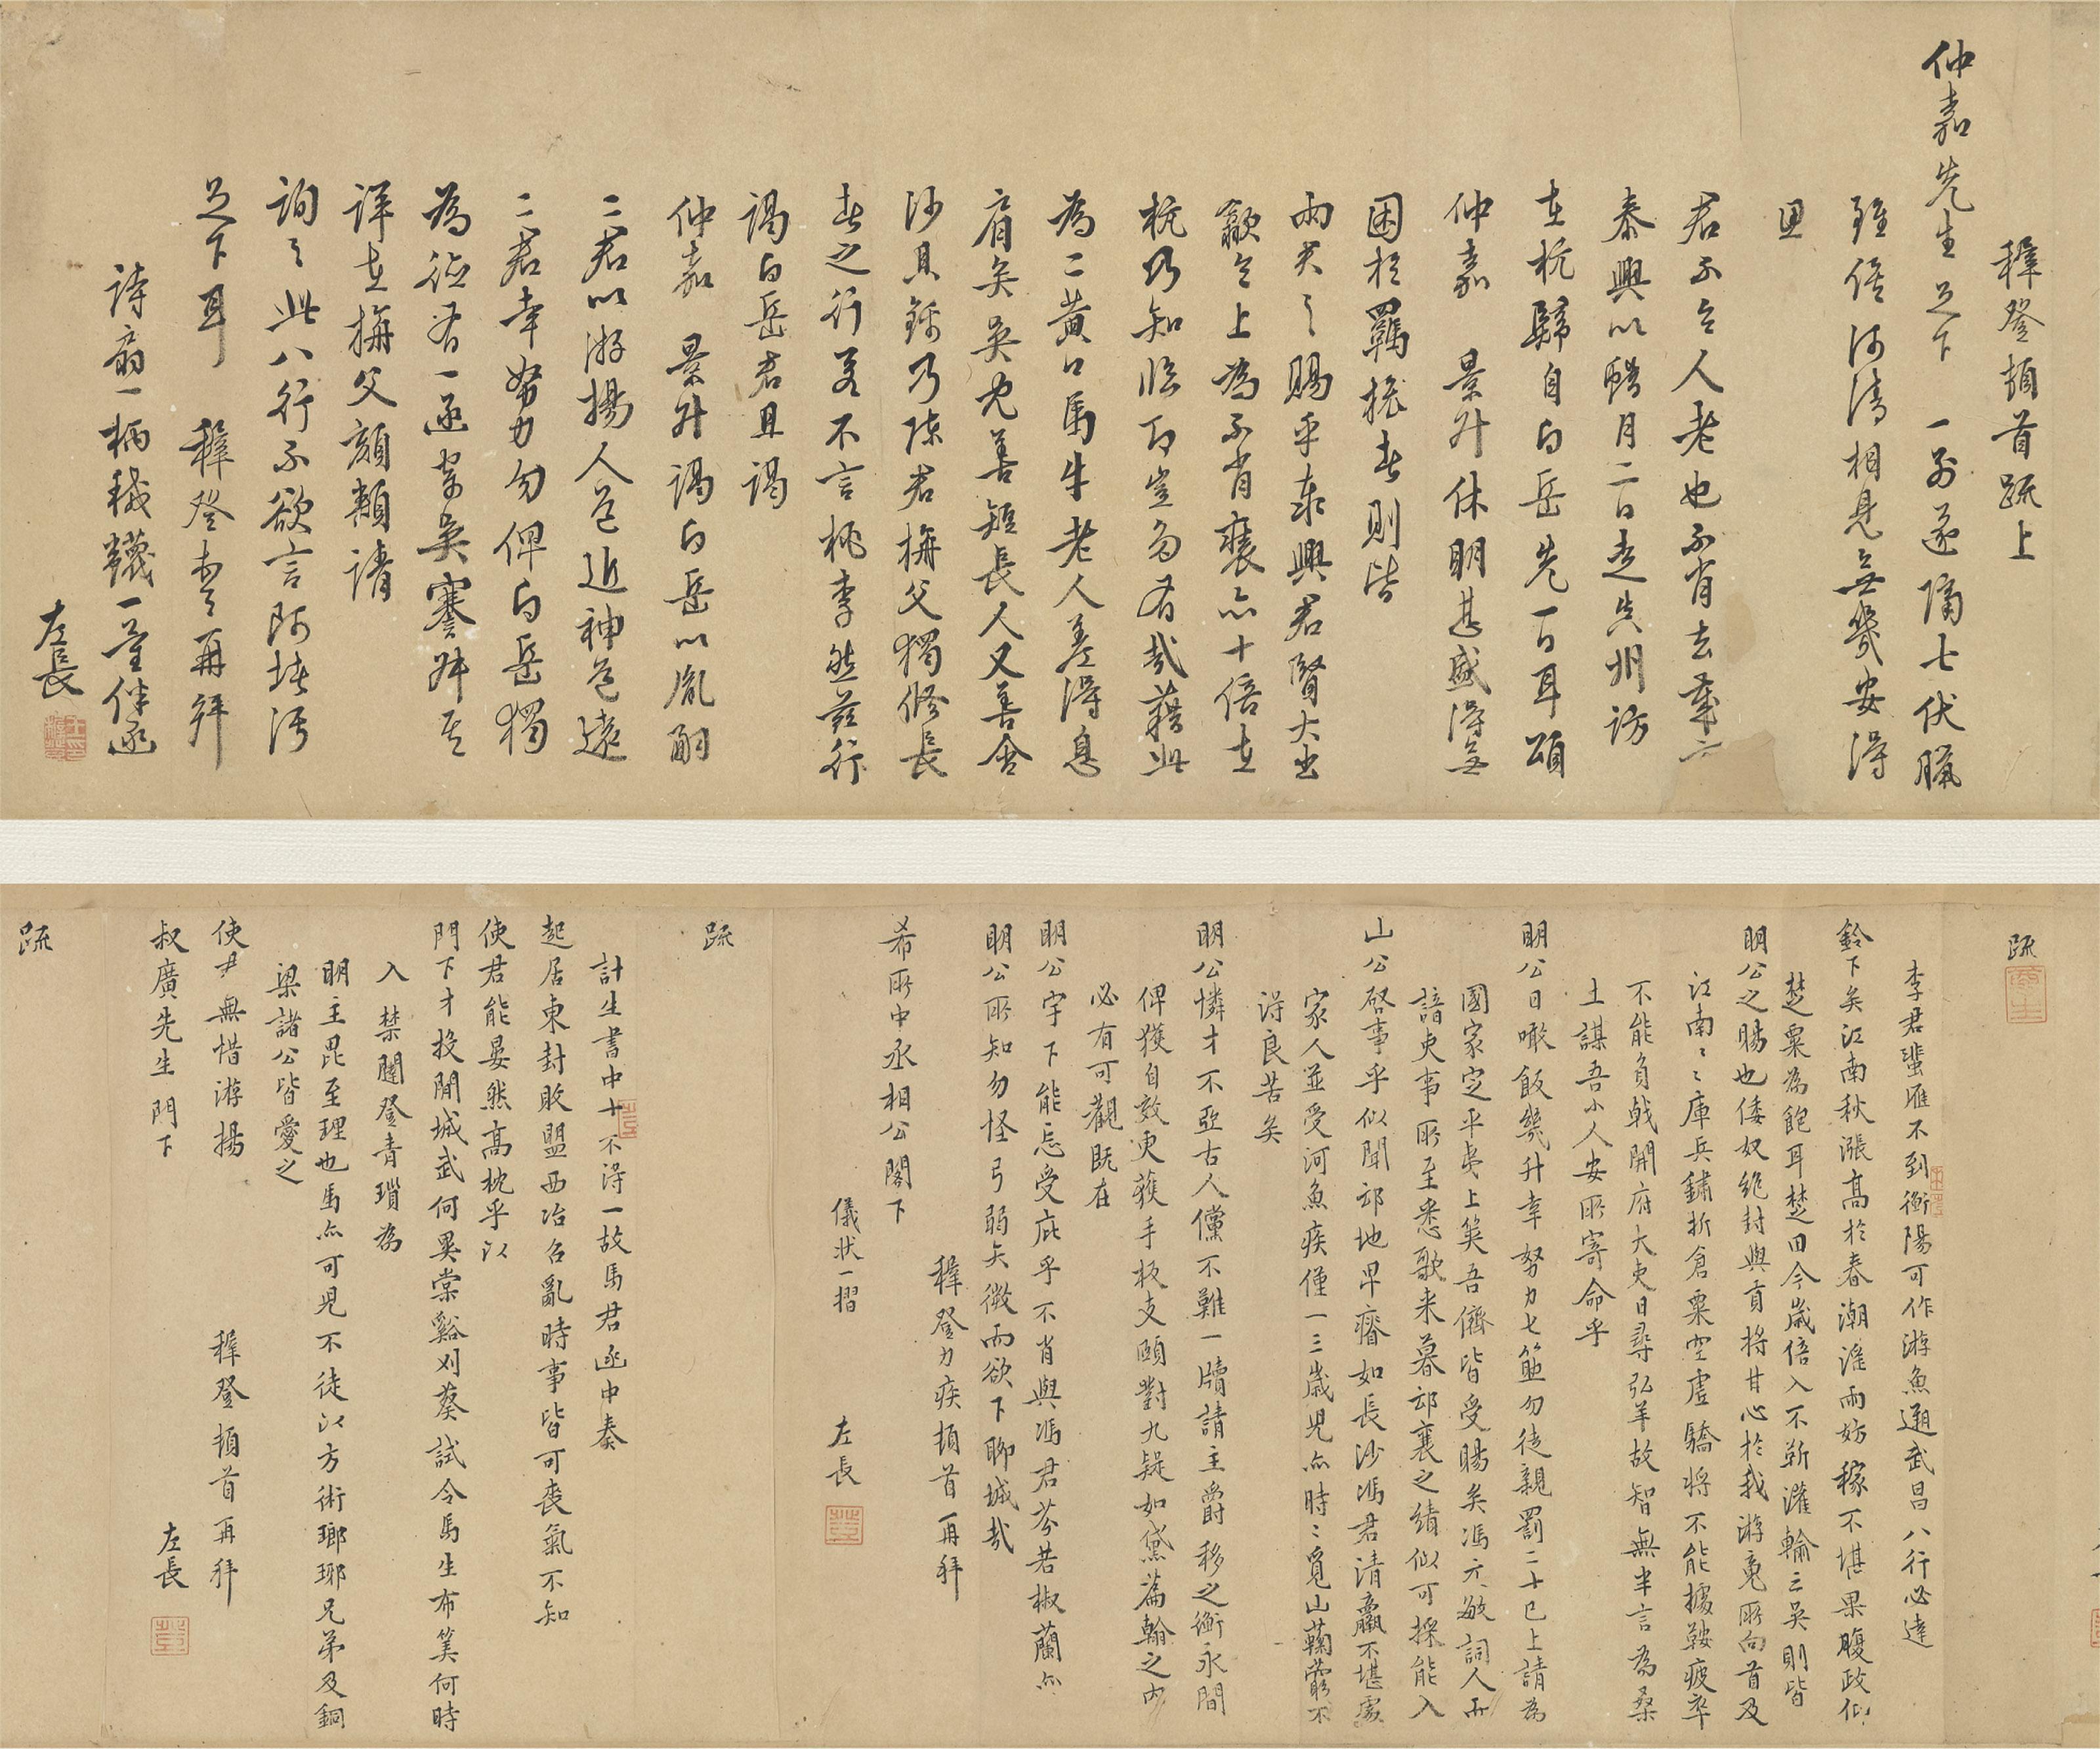 穉登頓首疏上
仲嘉先生足下 一別遂隔七伏臘
雖倍河清相見無幾安得
思
君不令人老也不肖去葬亡
泰興以醋月二日走真州訪
在杭歸自白岳先一日耳頌
仲嘉 景升休明甚盛得無
困於羈旅春則皆
兩君之賜乎泰興君賢大出
歙令上為不肖裹亦十倍在
杭乃知臨卭豈易有哉藉此
為二黃口馬牛老人差得息
肩矣吳允善短長人又善舍
沙具錦乃陳君擁父獨脩長
者之行若不言桃李然茲行
謁白岳君且謁
仲嘉 景升謁白岳以胤嗣
二君以游揚人邑近神邑遠
二君幸努力勿俾白岳獨
為德有一函寄吳寋叔至
詳在擁父顏頰請
詢之此八行不欲言阿堵污
足下耳 穉登素食再拜
詩扇一柄絨韈一量伴函
左長
疏
李君蜚雁不到衡陽可作游魚遡武昌八行必達
鈴下矣江南秋漲高於春潮淫雨妨稼不堪果腹政仰
楚粟為飽耳楚田今歲倍入不靳灌輸三吳則皆
明公之賜也倭奴絕封與貢將甘心於我游竟所向首及
江南江南庫兵鏽折倉粟空虛驕將不能據鞍疲卒
不能負戟開府大吏日尋弘羊故智無半言為桑
土謀吾小人安所寄命乎
明公日噉飯幾升幸努力匕筯勿徒親罰二十已上請為
國家定平夷上筴吾儕皆受賜矣馮元敏詞人而
諳吏事所至悉歌來暮邵襄之績似可採能入
山公啓事乎似聞邵地卑瘴如長沙馮君清羸不堪處
家人並受河魚疾僅一三歲兒亦時時覓山鞠藭不
得良苦矣
明公憐才不亞古人儻不難一牘請主爵移之衡永間
俾獲自效更獲手板支頤對九疑如黛篇翰之內
必有可觀既在
明公宇下能忘受庇乎不肖與馮君芬若椒蘭亦
明公所知勿怪弓弱矢微而欲下聊城哉
穉登力疾頓首再拜
希所中丞相公閣下
儀狀一摺
左長
疏
計生書中十不得一故馬君函中奏
起居東封敗盟西冶召亂時事皆可喪氣不知
使君能晏然高枕乎以
門下才投閒城武何異棠谿刈葵試令馬生布筴何時
入 禁闥登青瑣為
明主毘至理也馬亦可兒不徒以方術瑯琊兄弟及銅
梁諸公皆愛之
使君無惜游揚
穉登頓首再拜
叔廣先生門下
左長
疏